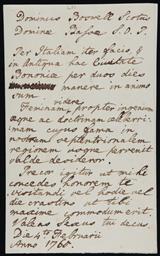 Dominus Boswell Scotus
Dominæ Bassæ S.D.P.
Per Italiam iter facio, &
in antiqua hac Civitate
Bononiæ per duos dies
manere in animo
videre
Feminam propter ingenium
æque ac doctrinam celeberri-
mam cujus fama in
nostram septentrionalem
regionem usque pervenit
valde desidero.
Precor igitur ut mihi
concedas honorem te
visitandi vel hodie vel
die crastino ut tibi
maxime commodum erit.
Valeas Sexus tui decus.
Die 4to Februarii
Anno 1765.